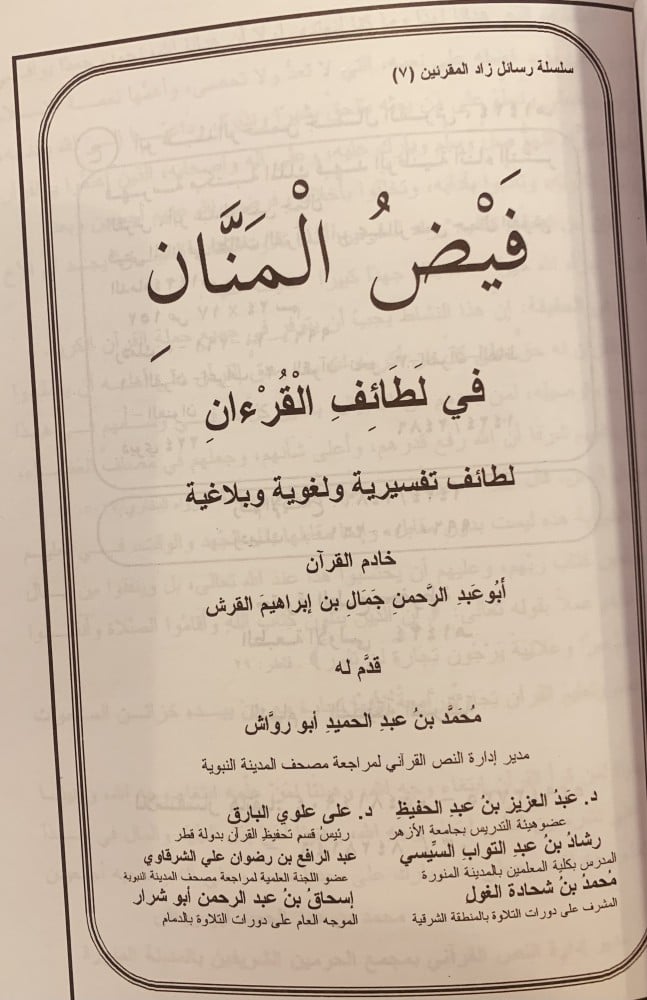 سلسلة رسائل زاد المقرئين (٧)
فَيْضُ الْمَنَّانِ
في لَطَائِفِ الْقُرْءانِ
لطائف تفسيرية ولغوية وبلاغية
خادم القرآن
أَبُوعَبدِ الرَّحمنِ جَمَالِ بن إبراهيمَ القرش
قدَّم له
مُحَمَّد بنُ عبدِ الحميدِ أبو روَّاش
مدير إدارة النص القرآني لمراجعة مصحف المدينة النبوية
د. عَبدُ العزيزِ بنُ عبدِ الحفيظِ
عضوهيئة التدريس بجامعة الأزهر
رشادُ بنُ عبدِ التوابِ السِّيسي
المدرس بكلية المعلمين بالمدينة المنورة
مُحمدُ بنُ شحادة الغول
المشرف على دورات التلاوة بالمنطقة الشرقية
د. على علوي البارق
رئيسُ قسم تحفيظِ القرآن بدولة قطر
عبد الرافع بن رضوان علي الشرقاوي
عضو اللجنة العلمية لمراجعة مصحف المدينة النبوية
إسحاقُ بنُ عبد الرحمن أبو شرار
الموجه العام على دورات التلاوة بالدمام